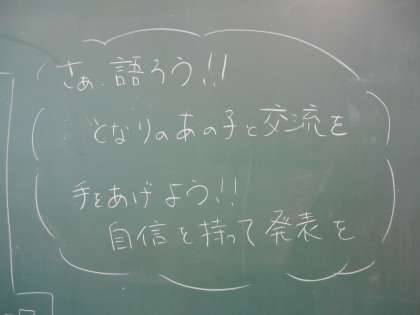 さぁ、語ろう!!
となりのあの子と交流を
手をあげよう!!
自信を持って発表を